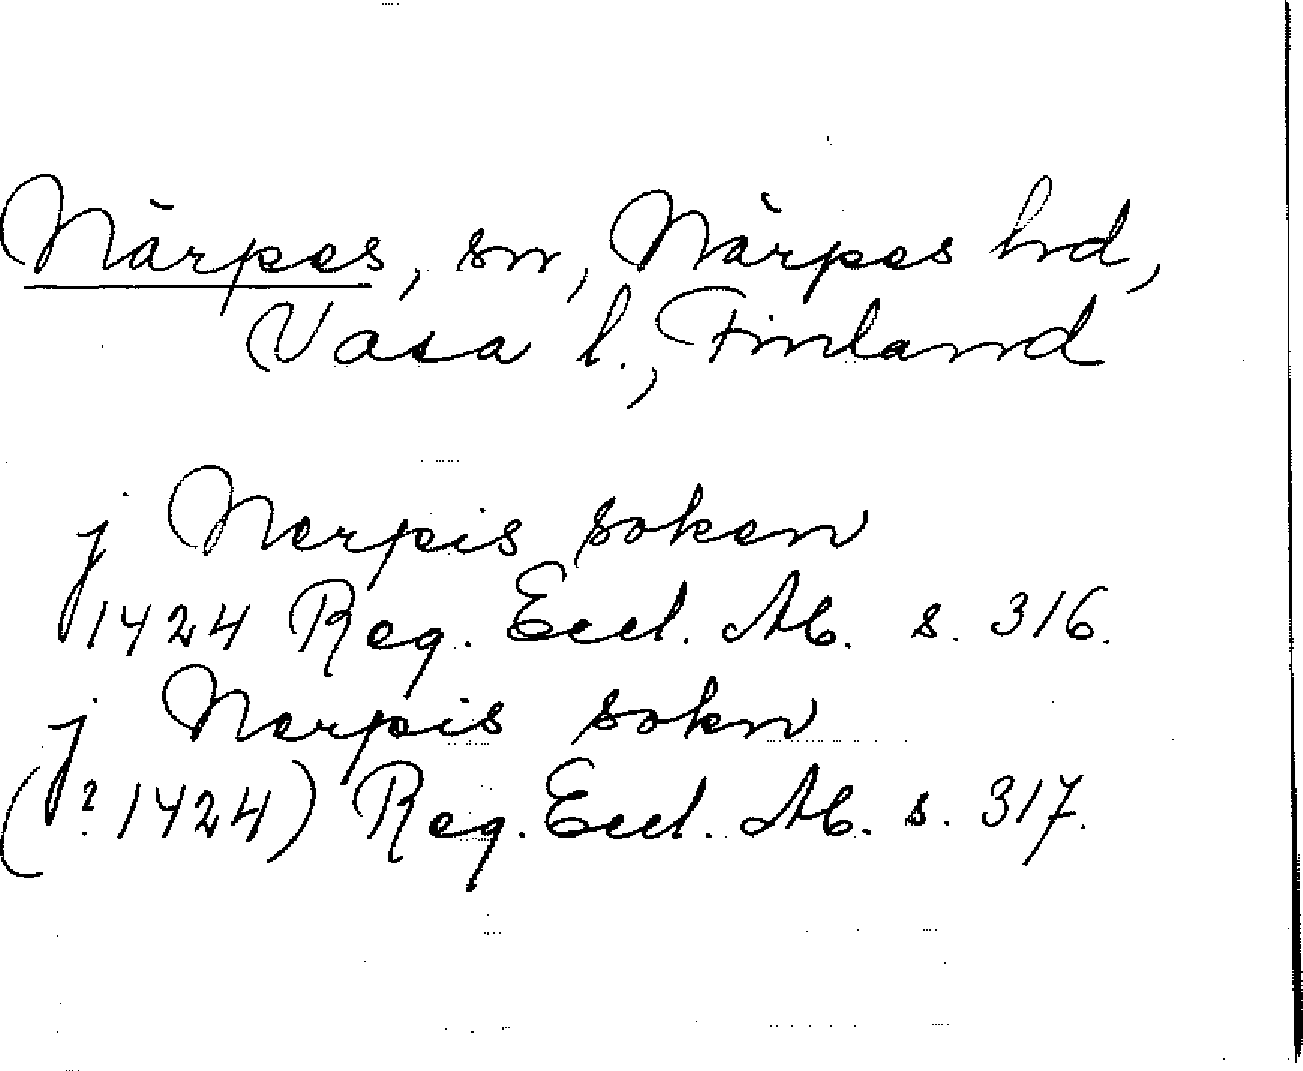 Närpes, sn, Närpes hd,
Vasa l., Finland
j Nerpis soken
1424 Reg. Eccl. Ab. s. 316.
j Nerpis sokn
(? 1424) Reg. Eccl. Ab. s. 317.